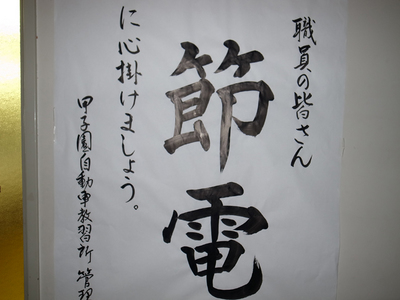 職員の皆さん
節電
に心掛けましょう。
甲子園自動車教習所 管理